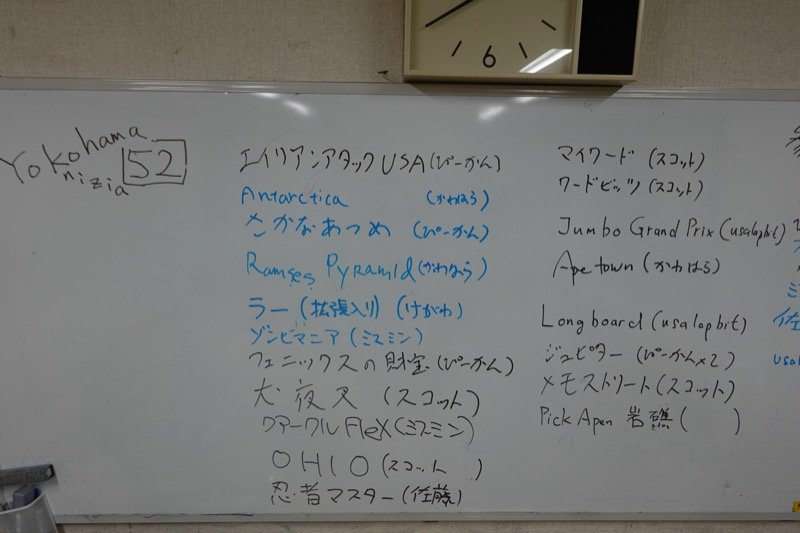 6
Yokohama
nizia 52
エイリアンアタック USA (ぴーかん)
Antarctica (かわはら)
さかなあつめ (ぴーかん)
Ramses Pyramid (かわはら)
ラー (拡張入り) (けがわ)
ゾンビマニア (ミスミン)
フェニックスの財宝 (ぴーかん)
犬夜叉 (スコット)
クアークルFleX (ミスミン)
OHIO (スコット)
忍者マスター (佐藤)
マイワード (スコット)
ワードビッツ (スコット)
Jumbo Grand Prix (usalapbit)
Apetown (かわはら)
Longboard (usalapbit)
ジュピター (ぴーかん×2)
メモストリート (スコット)
Pick Apen 岩礁 ( )
佐
usal